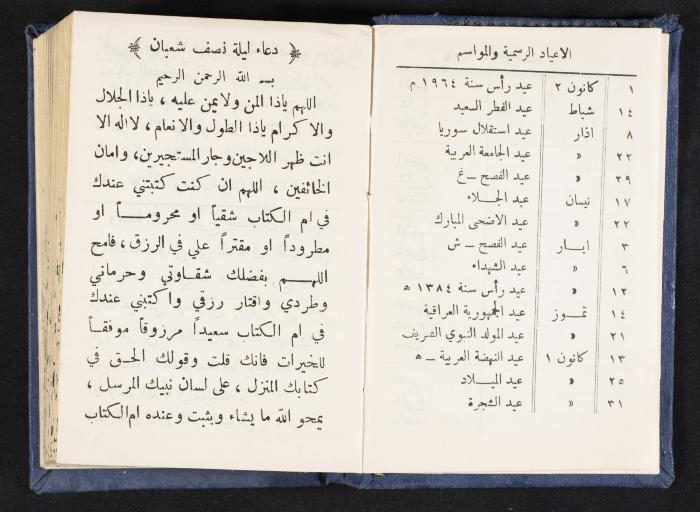 الاعياد الرسمية والمواسم
١ كانون ٢ عيد رأس سنة ١٩٦٤ م
١٤ شباط عيد الفطر السعيد
٨ اذار عيد استقلال سوريا
٢٢ » عيد الجامعة العربية
٢٩ » عيد الفصح ــ غ
١٧ نيسان عيد الجلاء
٢٢ » عيد الاضحى المبارك
٣ ايار عيد الفصح ــ ش
٦ » عيد الشهداء
١٢ » عيد رأس سنة ١٣٨٤ ه
١٤ تموز عيد الجمهورية العراقية
٢١ » عيد المولد النبوي الشريف
١٣ كانون ١ عيد النهضة العربية ــ ه
٢٥ » عيد الميلاد
٣١ » عيد الشجرة
دعاء ليلة نصف شعبان
بسم الله الرحمن الرحيم
اللهم ياذا المن ولا يمن عليه ، ياذا الجلال
والاكرام ياذا الطول والانعام ، لااله الا
انت ظهر اللاجين وجار المستجيرين، وامان
الخائفين ، اللهم ان كنت كتبتني عندك
في ام الكتاب شقياً او محروماً او
مطروداً او مقتراً علي في الرزق ، فامح
اللهم بفضلك شقاوتي وحرماني
وطردي واقتار رزقي واكتبني عندك
في ام الكتاب سعيداً مرزوقاً موفقاً
للخيرات فانك قلت وقولك الحق في
كتابك المنزل ، على لسان نبيك المرسل ،
يمحو الله ما يشاء ويثبت وعنده ام الكتاب